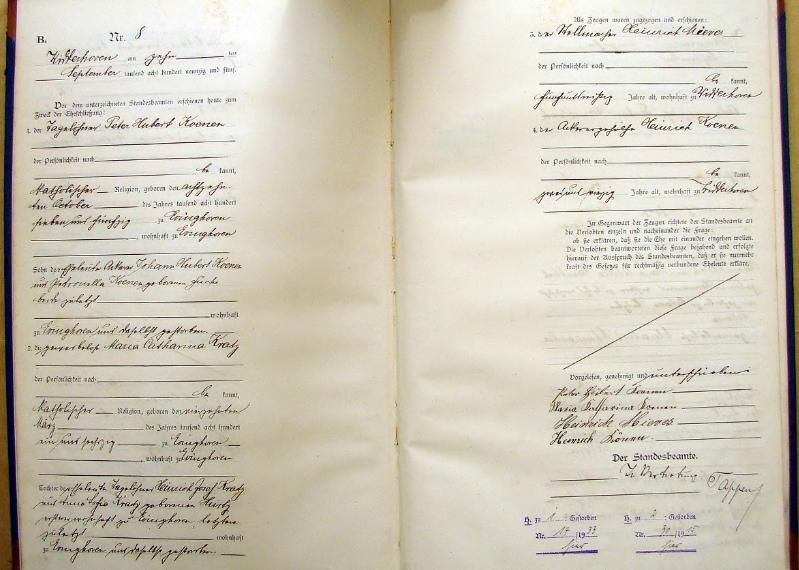 B. Nr. 8
am zehn ten
September tausend acht hundert neunzig und fünf.
Vor dem unterzeichneten Standesbeamten erschienen heute zum
Zweck der Eheschließung:
1. der Tagelöhner Peter Hubert Koenen
der Persönlichkeit nach
be kannt,
katholischer Religion, geboren den achtzehn-
ten October des Jahres tausend acht hundert
sieben und fünfzig zu
, wohnhaft zu
Sohn der Eheleute Ackerer Johann Hubert Koenen
und Petronella Koenen geborenen
beide zuletzt
wohnhaft
zu und daselbst gestorben.
2. die gewerblose Maria Catharina Kratz
der Persönlichkeit nach
be kannt,
katholischer Religion, geboren den vierzehnten
März des Jahres tausend acht hundert
ein und sechzig zu
, wohnhaft zu
Tochter der Eheleute Tagelöhner Heinrich Josef Kratz
und Anna Sofia Kratz geborenen
zu
zuletzt wohnhaft
zu und daselbst gestorben.
Als Zeugen waren zugezogen und erschienen:
3. der Stellmacher Heinrich
der Persönlichkeit nach
be kannt,
fünfunddreißig Jahre alt, wohnhaft zu
4. der Ackergehilfe Heinrich Koenen
der Persönlichkeit nach
be kannt,
zweiundvierzig Jahre alt, wohnhaft zu
In Gegenwart der Zeugen richtete der Standesbeamte an
die Verlobten einzeln und nacheinander die Frage:
ob sie erklären, daß sie die Ehe mit einander eingehen wollen.
Die Verlobten beantworteten diese Frage bejahend und erfolgte
hierauf der Ausspruch des Standesbeamten, daß er sie nunmehr
kraft des Gesetzes für rechtmäßig verbundene Eheleute erkläre.
Vorgelesen, genehmigt und unterschrieben
Peter Hubert Koenen
Maria Katharina Koenen
Heinrich
Heinrich Könen
Der Standesbeamte.
In Vertretung
Tappen
H. zu 1 : Gestorben H. zu 2 : Gestorben
Nr. 17 /1933 Nr. /1915
hier hier